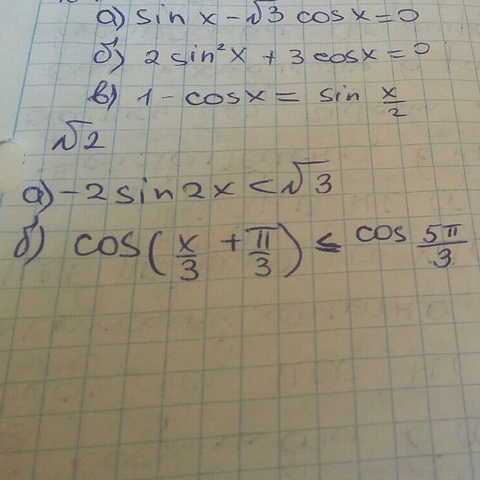 а) sin x - √3 cos x = 0
б) 2 sin² x + 3 cos x = 0
в) 1 - cos x = sin x/2
√2
а) -2 sin 2x < √3
б) cos (x/3 + π/3) ≤ cos 5π/3